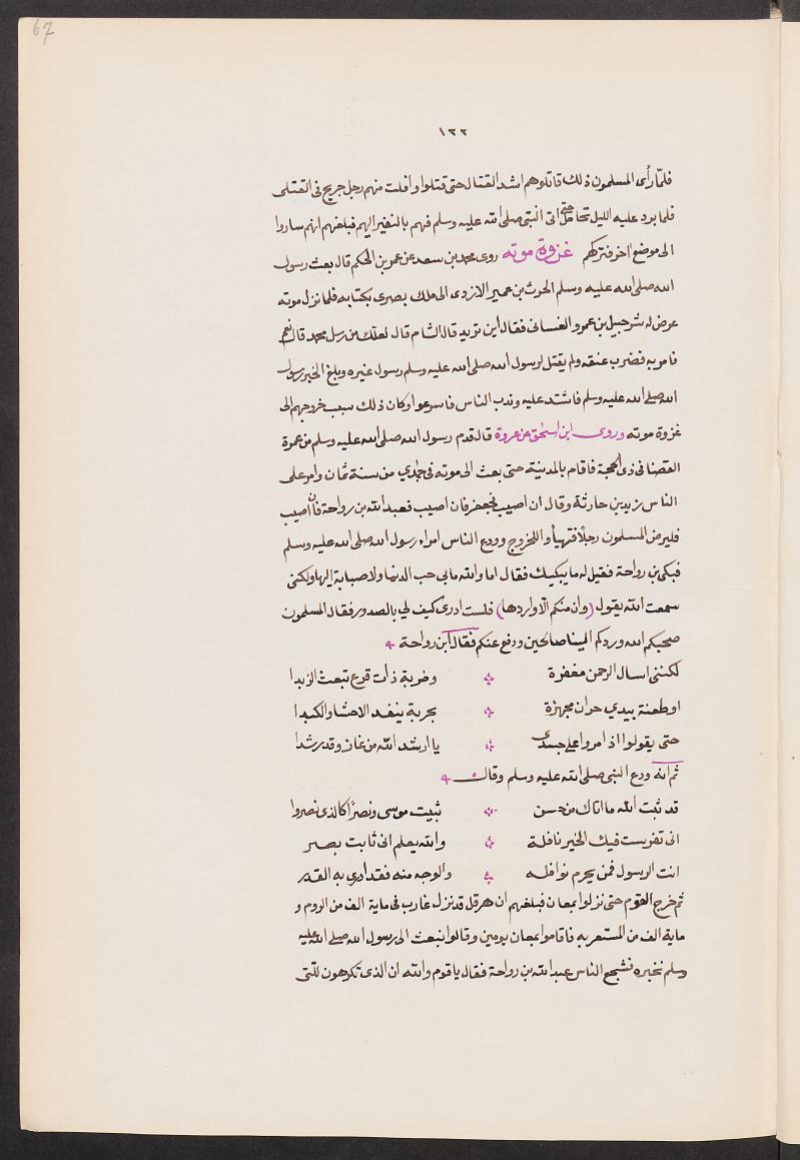 67
١٣٣
فلمّا رأى المسلمون ذلك قاتلوهم اشد القتال حتى قتلوا وافلت منهم رجل جريح فى القتلى
فلما برد عليه الليل تحامل حتى اتى النبى صلى الله عليه وسلم فهم بالنفير اليهم فبلغهم انهم ساروا
الى موضع اخر فتركهم غزوة موته روى محمد بن سعد عن عمر بن الحكم قال بعث رسول
الله صلى الله عليه وسلم الحرث بن عمير الازدى الى ملك بصرى بكتابه فلما نزل موته
عرض له شرحبيل بن عمرو الغسانى فقال اين تريد قال الشام قال لعلك من رسل محمد قال نعم
فامر به فضرب عنقه ولم يقتل لرسول الله صلى الله عليه وسلم رسول غيره وبلغ الخبر رسول
الله صلى الله عليه وسلم فاشتد عليه وندب الناس فاسرعوا وكان ذلك سبب خروجهم الى
غزوة موته وروى ابن اسحق عن عروة قال قدم رسول الله صلى الله عليه وسلم من عمرة
القضا فى ذى الحجة فاقام بالمدينة حتى بعث الى موته فى جمادي من سنة ثمان وامر على
الناس زيد بن حارثة وقال ان اصيب فجعفر فان اصيب فعبد الله بن رواحة فان اصيب
فليرض المسلمون رجلًا فتهيأوا للخروج وودع الناس امراء رسول الله صلى الله عليه وسلم
فبكى بن رواحة فقيل له ما يبكيك فقال اما والله مابى حب الدنيا ولا صبابة اليها ولكنى
سمعت الله يقول (وان منكم الّا واردها) فلست ادرى كيف لي بالصدور فقال المسلمون
صحبكم الله وردكم الينا صالحين ودفع عنكم فقال ابن رواحة
لكننى اسال الرحمن مغفرة وضربة ذات قرع تبعث الزبدا
او طعنة بيدي حران مجهزة بحربة ينفد الاحشا والكبدا
حتى يقولوا اذا مروا على جسدى يا ارشد الله من غاز وقد رشدا
ثم انه ودع النبى صلى الله عليه وسلم وقال
قد ثبت الله ما اتاك من حسن ثبيت موسى ونصرًا كالذى نصروا
انى تفرست فيك الخير نافلة والله يعلم انى ثابت بصر
انت الرسول فمن يحرم نوافله والوجه منه فقد ادرى به القدر
ثم خرج القوم حتى نزلوا بمعان فبلغهم ان هرقل قد نزل غارب فى ماية الف من الروم و
ماية الف من المستعربه فاقاموا بمعان يومين وقالوا نبعث الى رسول الله صلى الله عليه
وسلم نخبره فشجع الناس عبد الله بن رواحة فقال يا قوم والله ان الذى تكرهون للتى